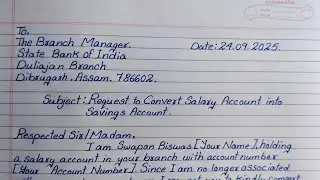 To,
The Branch Manager. Date:24.09.2025.
State Bank of India
Duliajan Branch
Dibrugarh, Assam. 786602.
Subject: Request to Convert Salary Account into
Savings Account.
Respected Sir/Madam,
I am Swapan Biswas [Your Name], holding
a salary account in your branch with account number
[Your Account Number]. Since I am no longer associated
I request you to kindly convert